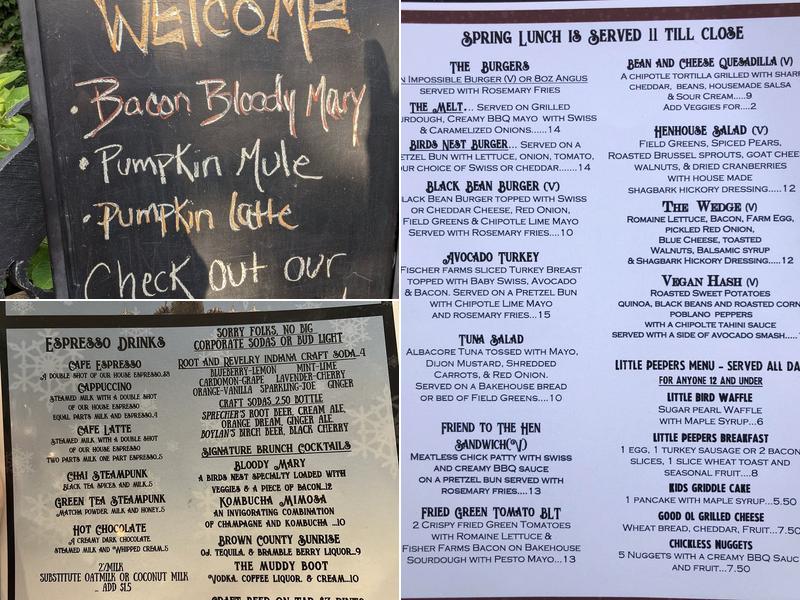 WELCOME
• Bacon Bloody Mary
• Pumpkin Mule
• Pumpkin latte
Check out our
ESPRESSO DRINKS
CAFE ESPRESSO
A DOUBLE SHOT OF OUR HOUSE ESPRESSO..$3
CAPPUCCINO
STEAMED MILK WITH A DOUBLE SHOT
OF OUR HOUSE ESPRESSO
EQUAL PARTS MILK AND ESPRESSO.4
CAFE LATTE
STEAMED MILK WITH A DOUBLE SHOT
OF OUR HOUSE ESPRESSO
TWO PARTS MILK ONE PART ESPRESSO.5
CHAI STEAMPUNK
BLACK TEA SPICES AND MILK.5
GREEN TEA STEAMPUNK
MATCHA POWDER, MILK AND HONEY.5
HOT CHOCOLATE
A CREAMY DARK CHOCOLATE
STEAMED MILK AND WHIPPED CREAM..5
2%MILK
SUBSTITUTE OATMILK OR COCONUT MILK
.. ADD $1.5
SORRY FOLKS, NO BIG
CORPORATE SODAS OR BUD LIGHT
ROOT AND REVELRY INDIANA CRAFT SODA..4
BLUEBERRY-LEMON MINT-LIME
CARDOMON-GRAPE LAVENDER-CHERRY
ORANGE-VANILLA SPARKLING-JOE GINGER
CRAFT SODAS 2.50 BOTTLE
SPRECHER'S ROOT BEER, CREAM ALE,
ORANGE DREAM, GINGER ALE
BOYLAN'S BIRCH BEER, BLACK CHERRY
SIGNATURE BRUNCH COCKTAILS
BLOODY MARY
A BIRDS NEST SPECIALTY LOADED WITH
VEGGIES & A PIECE OF BACON...12
KOMBUCHA MIMOSA
AN INVIGORATING COMBINATION
OF CHAMPAGNE AND KOMBUCHA ...10
BROWN COUNTY SUNRISE
OJ. TEQUILA, & BRAMBLE BERRY LIQUOR...9
THE MUDDY BOOT
VODKA, COFFEE LIQUOR, & CREAM....10
CRAFT BEER ON TAP $7 PINTS
SPRING LUNCH IS SERVED 11 TILL CLOSE
THE BURGERS
N IMPOSSIBLE BURGER (V) OR 8OZ ANGUS
SERVED WITH ROSEMARY FRIES
THE MELT... SERVED ON GRILLED
URDOUGH, CREAMY BBQ MAYO WITH SWISS
& CARAMELIZED ONIONS......14
BIRDS NEST BURGER... SERVED ON A
ETZEL BUN WITH LETTUCE, ONION, TOMATO,
OUR CHOICE OF SWISS OR CHEDDAR.......14
BLACK BEAN BURGER (V)
LACK BEAN BURGER TOPPED WITH SWISS
OR CHEDDAR CHEESE, RED ONION,
FIELD GREENS & CHIPOTLE LIME MAYO
SERVED WITH ROSEMARY FRIES....10
AVOCADO TURKEY
FISCHER FARMS SLICED TURKEY BREAST
TOPPED WITH BABY SWISS, AVOCADO
& BACON. SERVED ON A PRETZEL BUN
WITH CHIPOTLE LIME MAYO
AND ROSEMARY FRIES...15
TUNA SALAD
ALBACORE TUNA TOSSED WITH MAYO,
DIJON MUSTARD, SHREDDED
CARROTS, & RED ONION.
SERVED ON A BAKEHOUSE BREAD
OR BED OF FIELD GREENS....10
FRIEND TO THE HEN
SANDWICH(V)
MEATLESS CHICK PATTY WITH SWISS
AND CREAMY BBQ SAUCE
ON A PRETZEL BUN SERVED WITH
ROSEMARY FRIES....13
FRIED GREEN TOMATO BLT
2 CRISPY FRIED GREEN TOMATOES
WITH ROMAINE LETTUCE &
FISHER FARMS BACON ON BAKEHOUSE
SOURDOUGH WITH PESTO MAYO...13
BEAN AND CHEESE QUESADILLA (V)
A CHIPOTLE TORTILLA GRILLED WITH SHARP
CHEDDAR, BEANS, HOUSEMADE SALSA
& SOUR CREAM.....9
ADD VEGGIES FOR....2
HENHOUSE SALAD (V)
FIELD GREENS, SPICED PEARS,
ROASTED BRUSSEL SPROUTS, GOAT CHEES
WALNUTS, & DRIED CRANBERRIES
WITH HOUSE MADE
SHAGBARK HICKORY DRESSING.....12
THE WEDGE (V)
ROMAINE LETTUCE, BACON, FARM EGG,
PICKLED RED ONION,
BLUE CHEESE, TOASTED
WALNUTS, BALSAMIC SYRUP
& SHAGBARK HICKORY DRESSING.....12
VEGAN HASH (V)
ROASTED SWEET POTATOES
QUINOA, BLACK BEANS AND ROASTED CORN
POBLANO PEPPERS
WITH A CHIPOLTE TAHINI SAUCE
SERVED WITH A SIDE OF AVOCADO SMASH.....
LITTLE PEEPERS MENU - SERVED ALL DA
FOR ANYONE 12 AND UNDER
LITTLE BIRD WAFFLE
SUGAR PEARL WAFFLE
WITH MAPLE SYRUP...6
LITTLE PEEPERS BREAKFAST
1 EGG, 1 TURKEY SAUSAGE OR 2 BACON
SLICES, 1 SLICE WHEAT TOAST AND
SEASONAL FRUIT....8
KIDS GRIDDLE CAKE
1 PANCAKE WITH MAPLE SYRUP...5.50
GOOD OL GRILLED CHEESE
WHEAT BREAD, CHEDDAR, FRUIT...7.50
CHICKLESS NUGGETS
5 NUGGETS WITH A CREAMY BBQ SAUC
AND FRUIT...7.50